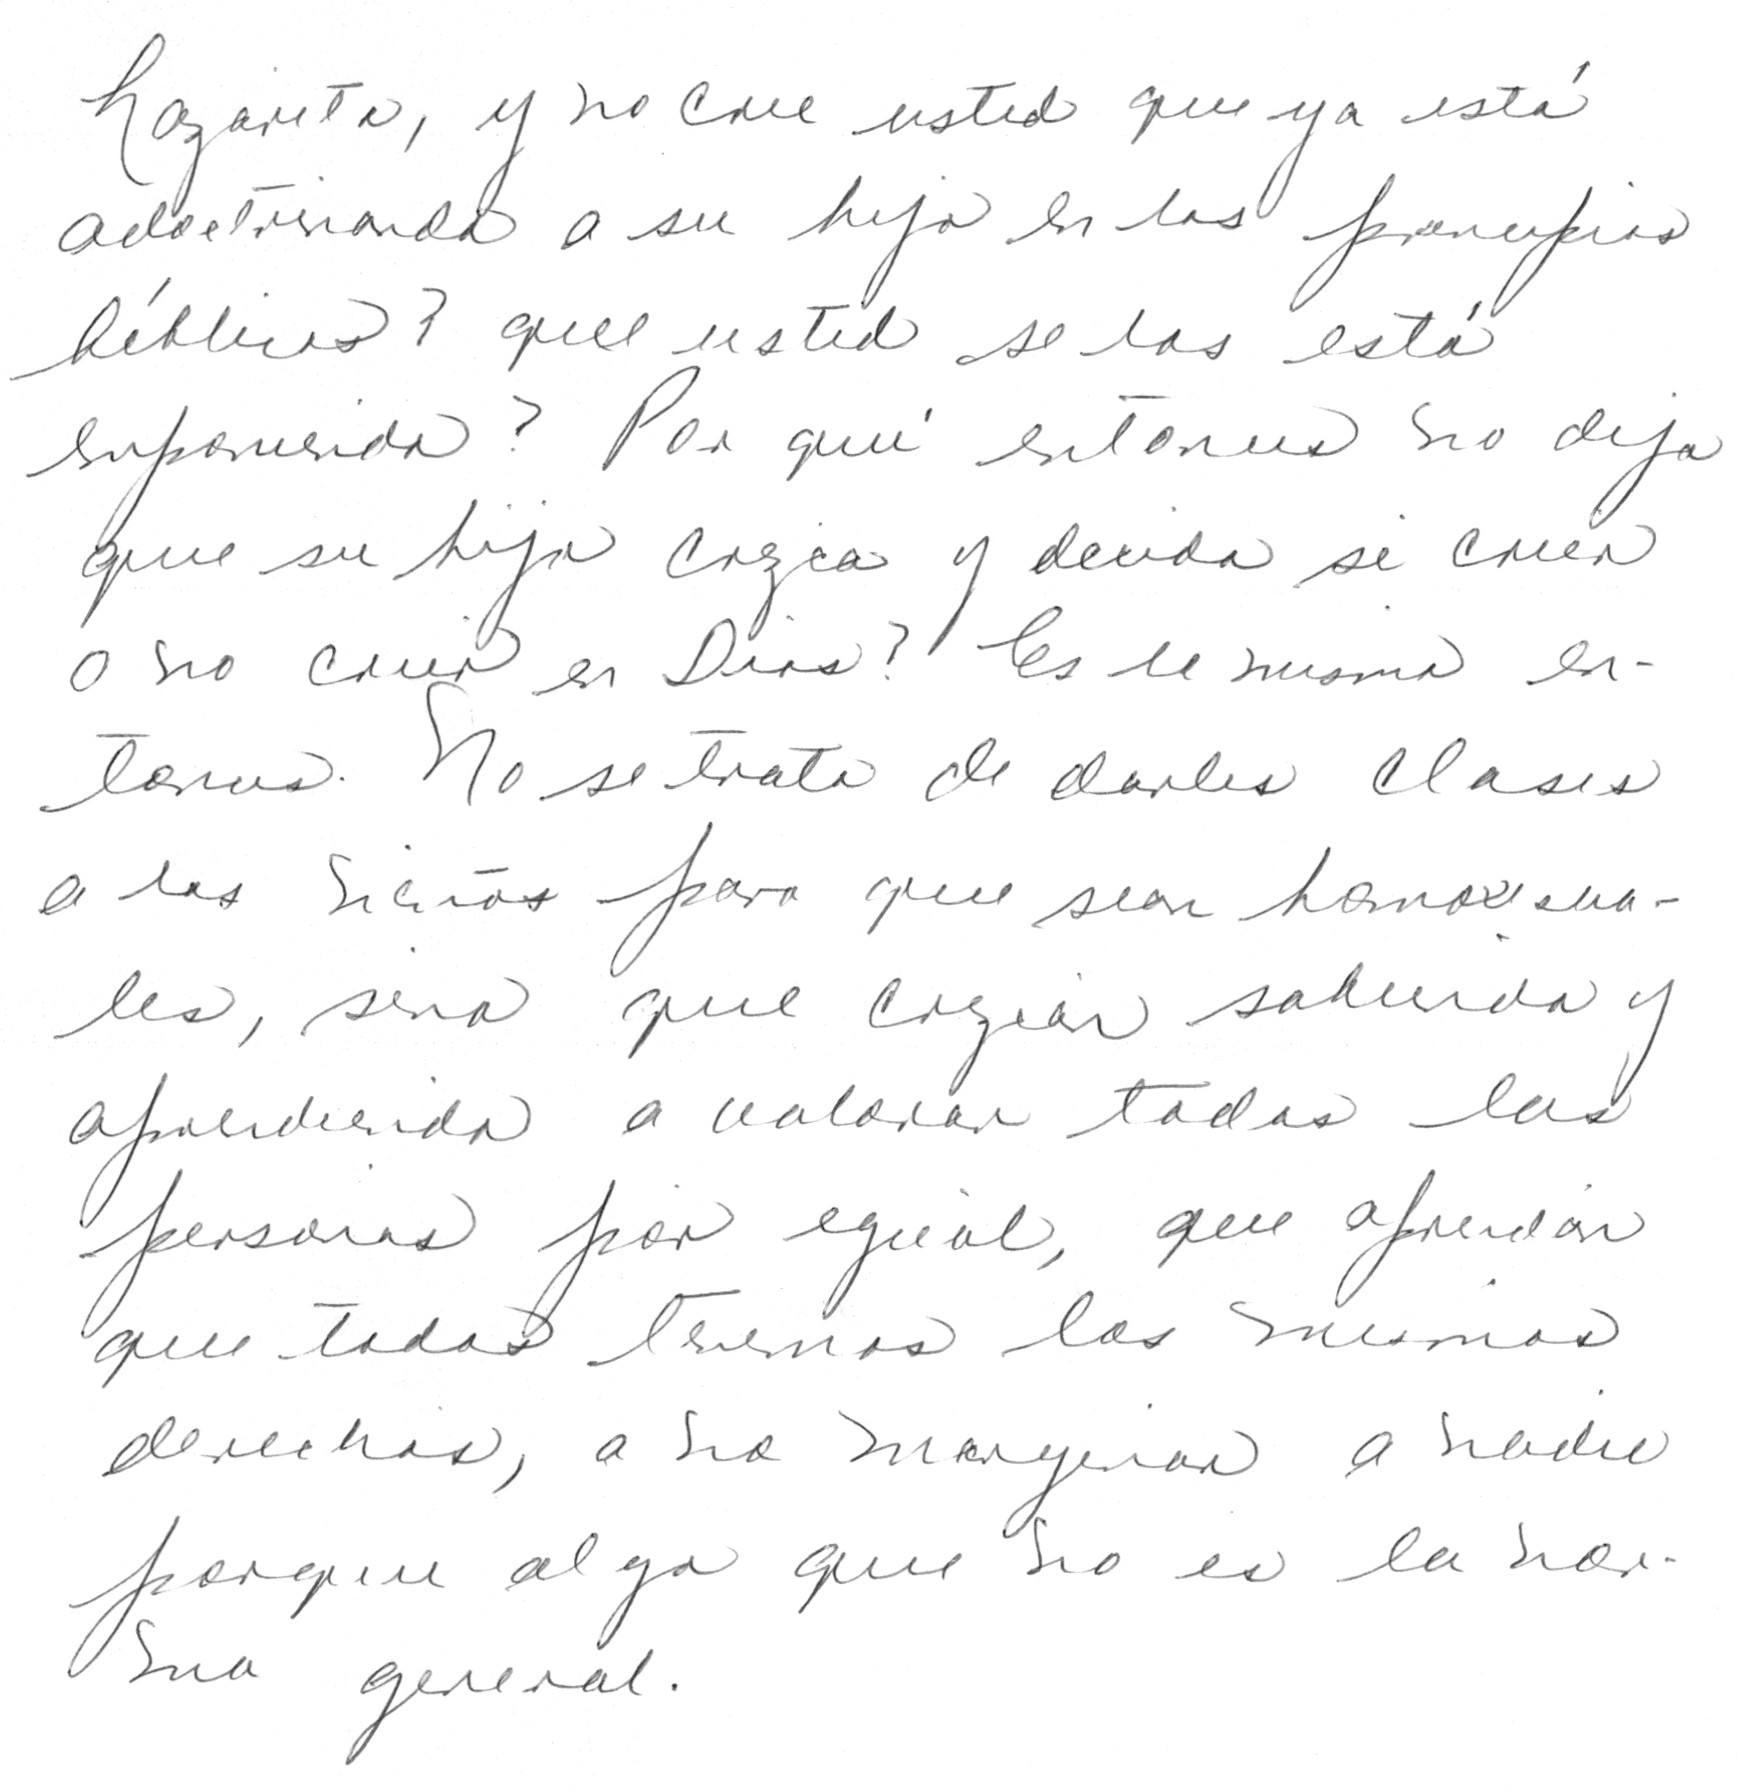 Nazarito, y no cree usted que ya está
adoctrinando a su hijo en los principios
bíblicos? que usted se los está
imponiendo? Por qué entonces no deja
que su hijo crezca y decida si creer
o no creer en Dios? Es lo mismo en-
tonces. No se trata de darles clases
a los niños para que sean homosexua-
les, sino que crezcan sabiendo y
aprendiendo a valorar todas las
personas por igual, que aprendan
que todos tenemos los mismos
derechos, a no marginar a nadie
porque algo que no es la nor-
ma general.